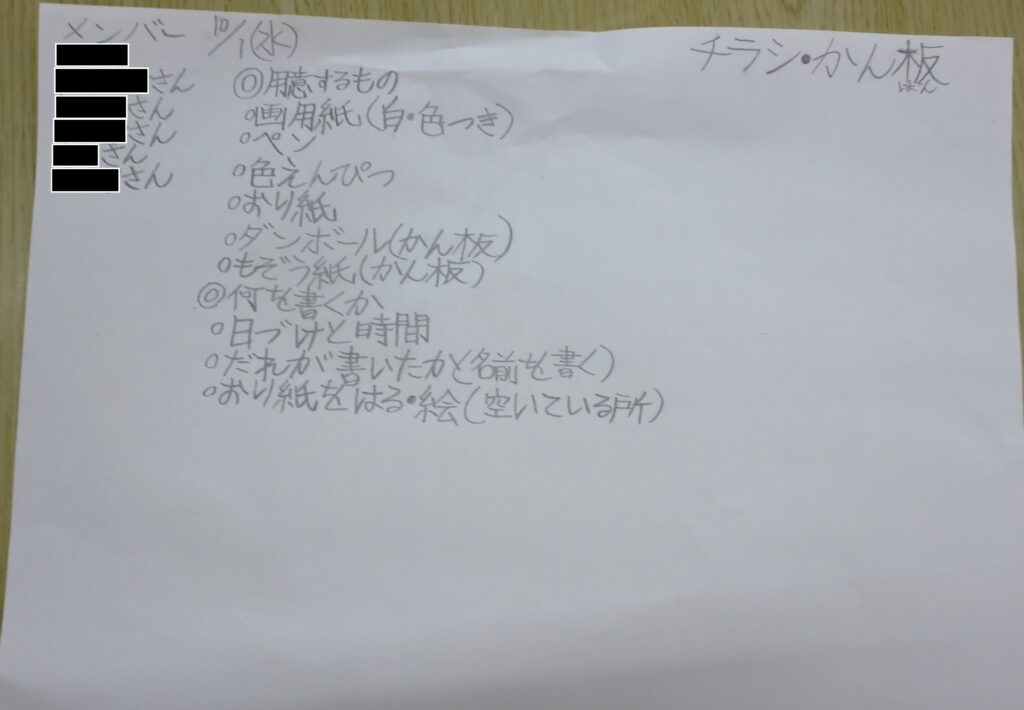 メンバー 10/1(水)
チラシ・かん板
ばん
さん
さん
さん
さん
さん
◎用意するもの
○画用紙(白・色つき)
○ペン
○色えんぴつ
○おり紙
○ダンボール(かん板)
○もぞう紙(かん板)
◎何を書くか
○日づけと時間
○だれが書いたかと名前を書く)
○おり紙をはる・絵(空いている所)